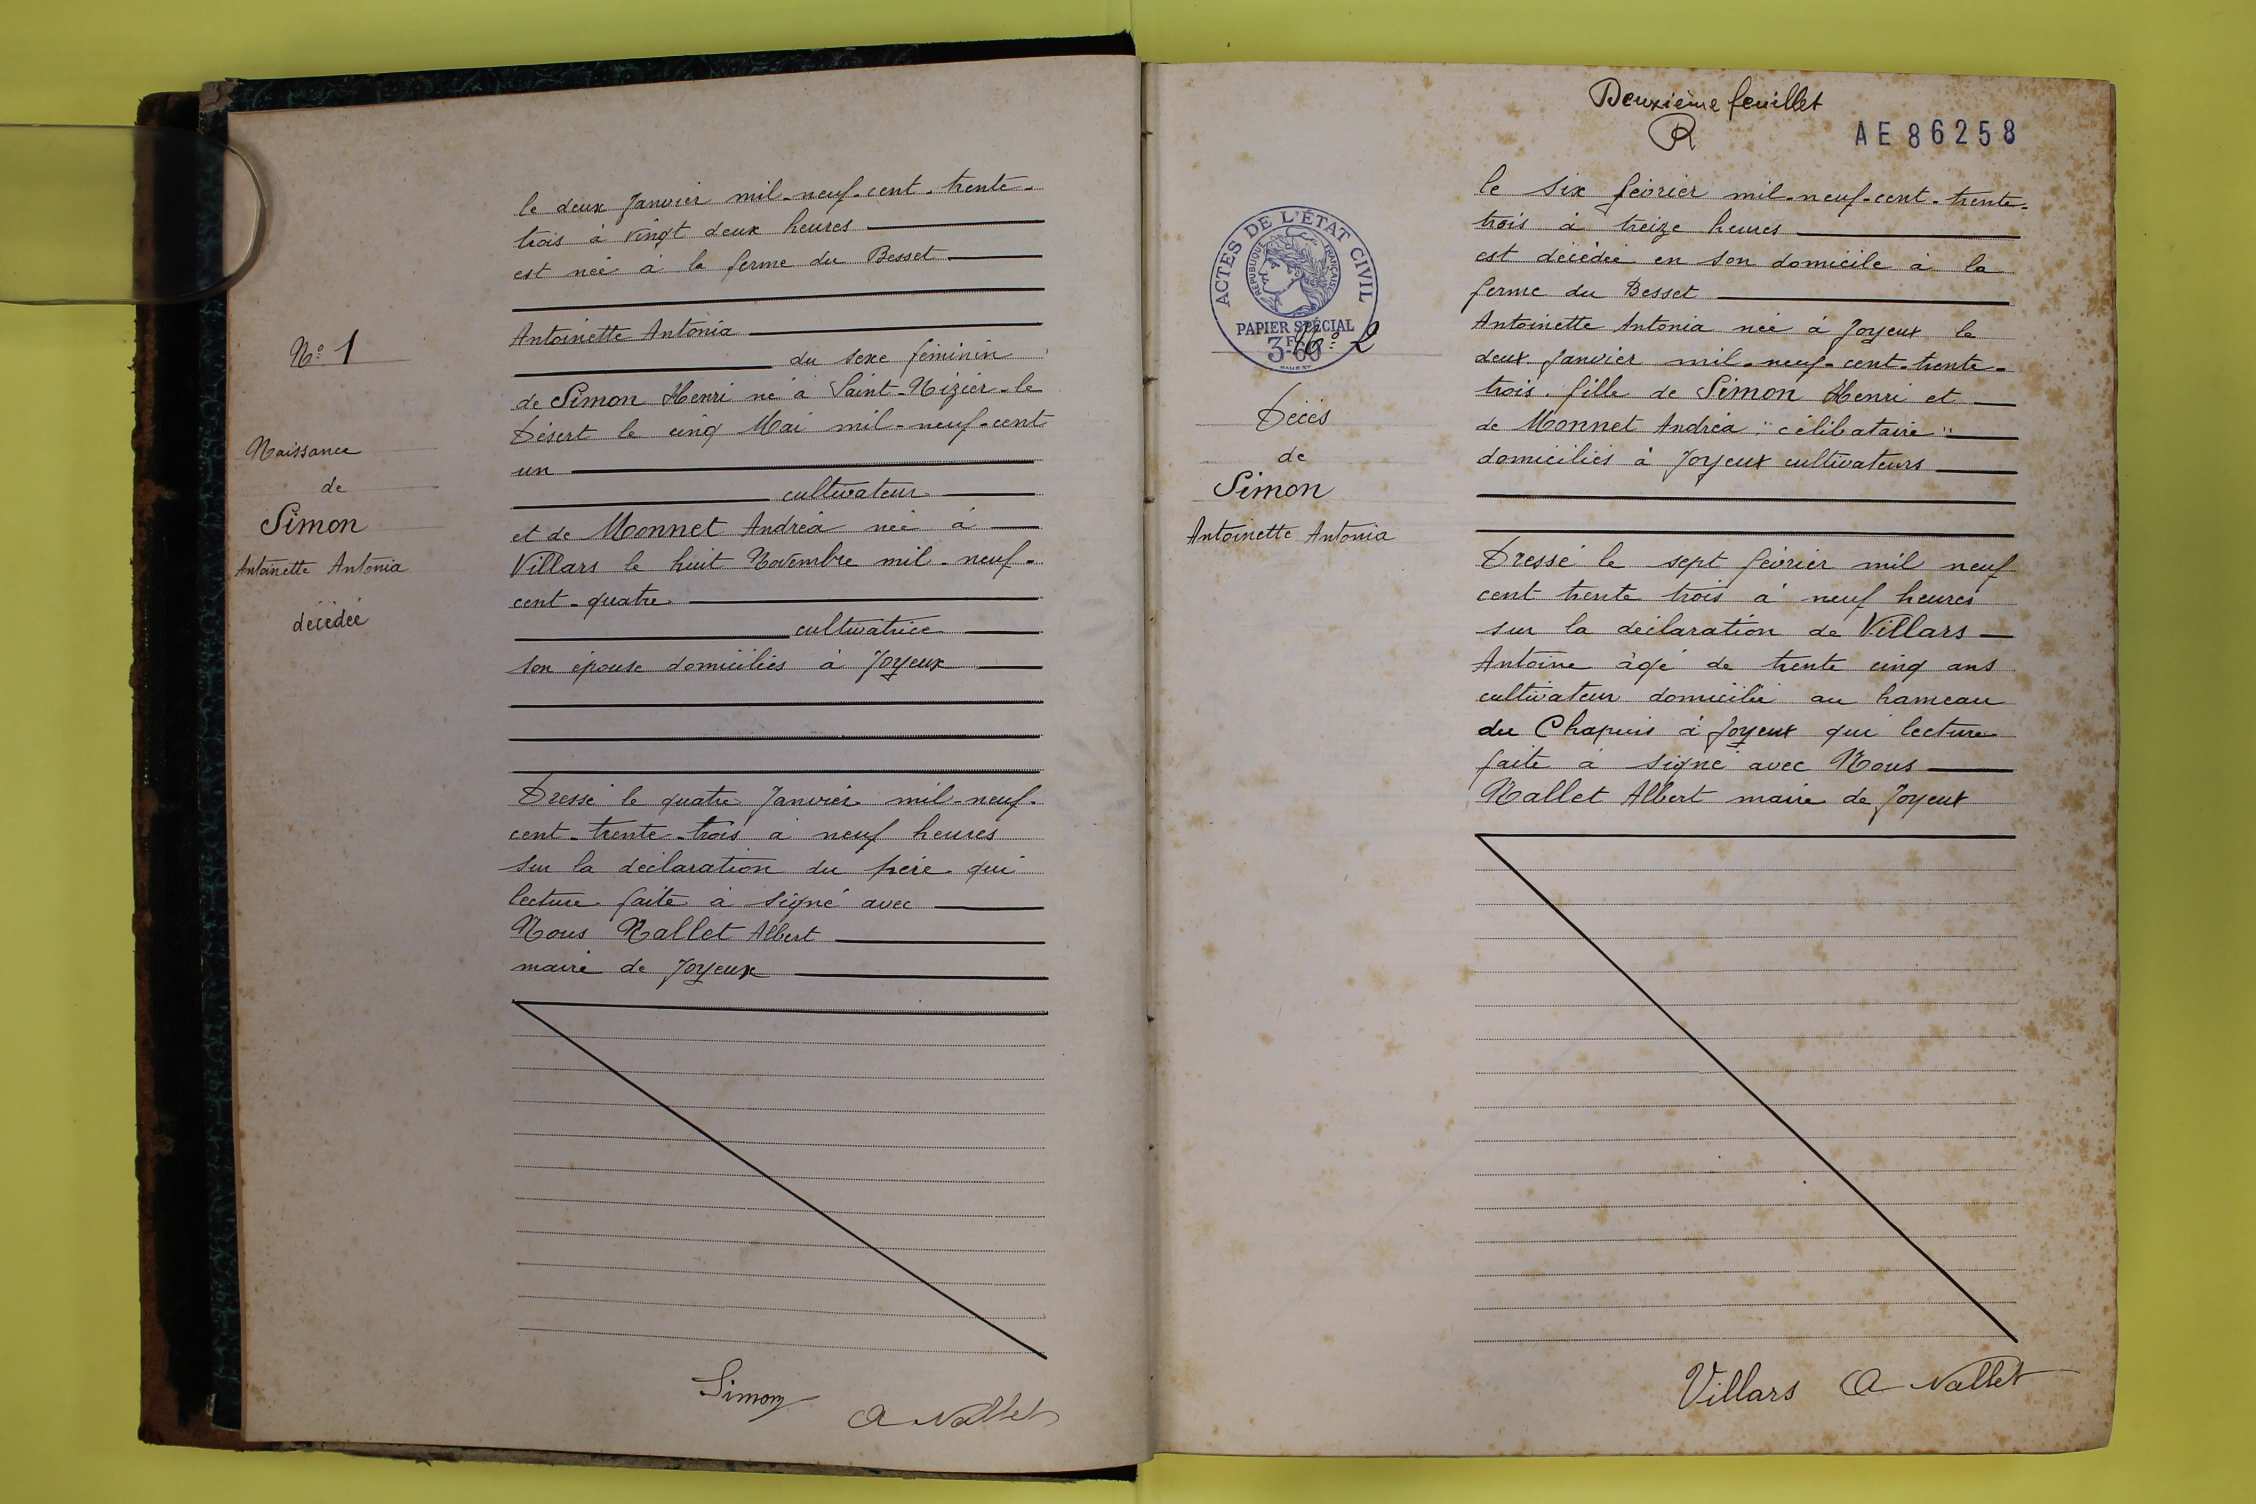 N° 1
Naissance
de
Simon
Antoinette Antonia
décédée
le deux Janvier mil-neuf-cent-trente-
trois à vingt deux heures
est née à la ferme du Besset
Antoinette Antonia
du sexe féminin
de Simon Henri né à Saint-Nizier-le
Désert le cinq Mai mil-neuf-cent
un
cultivateur
et de Monnet Andréa née à
Villars le huit Novembre mil-neuf-
cent-quatre
cultivatrice
son épouse domiciliés à Joyeux
Dressé le quatre Janvier mil-neuf-
cent-trente-trois à neuf heures
sur la déclaration du père qui
lecture faite à signé avec
Nous Nallet Albert
maire de Joyeux
Simon
A Nallet
Deuxième feuillet
R
AE 86258
ACTES DE L'ÉTAT CIVIL
RÉPUBLIQUE FRANÇAISE
PAPIER SPÉCIAL
3F60
N° 2
Décès
de
Simon
Antoinette Antonia
le six février mil-neuf-cent-trente-
trois à treize heures
est décédée en son domicile à la
ferme du Besset
Antoinette Antonia née à Joyeux le
deux Janvier mil-neuf-cent-trente-
trois. fille de Simon Henri et
de Monnet Andréa "célibataire"
domiciliés à Joyeux cultivateurs
Dressé le sept février mil neuf
cent trente trois à neuf heures
sur la déclaration de Villars
Antoine âgé de trente cinq ans
cultivateur domicilié au hameau
du Chapuis à Joyeux qui lecture
faite à signé avec Nous
Nallet Albert maire de Joyeux
Villars
A Nallet